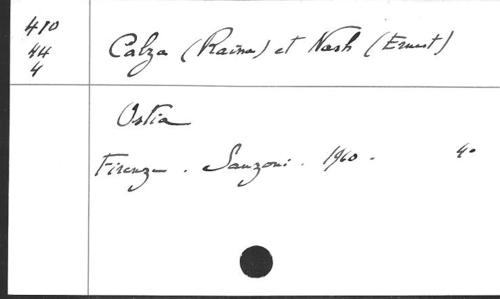 410
44
4
Calza (Raina) et Nash (Ernest)
Ostia
Firenze . Sanzoni . 1960 . 4°